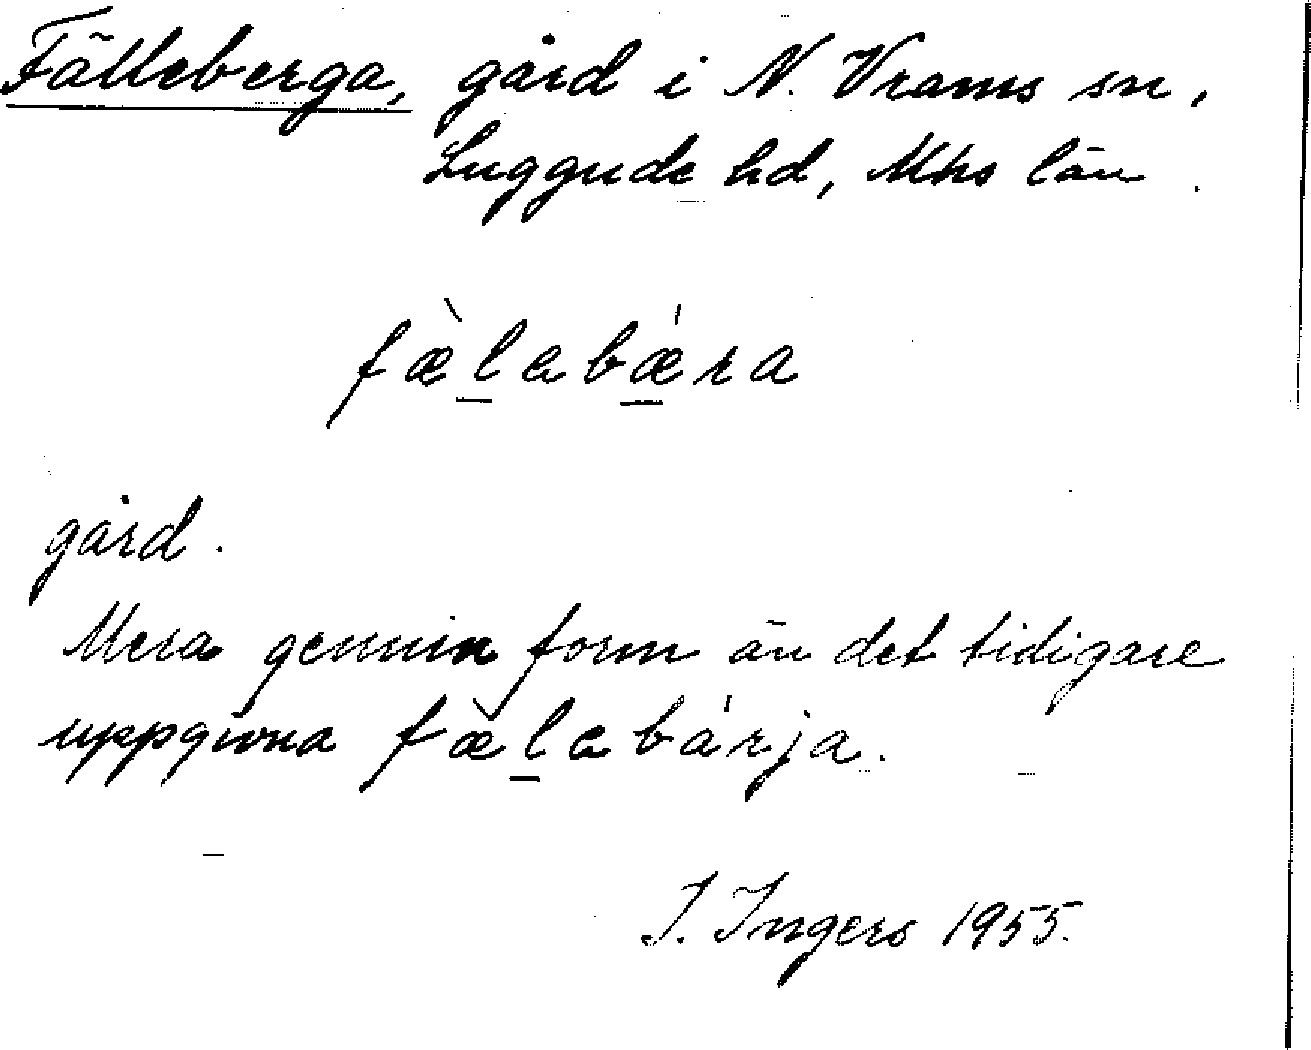 Fälleberga, gård i N. Vrams sn,
Luggude hd, Mhs län.
fæ̀l̲ebǽ̲ra
gård.
Mera genuin form än det tidigare
uppgivna fæ̀l̲ebárja.
I. Ingers 1955.